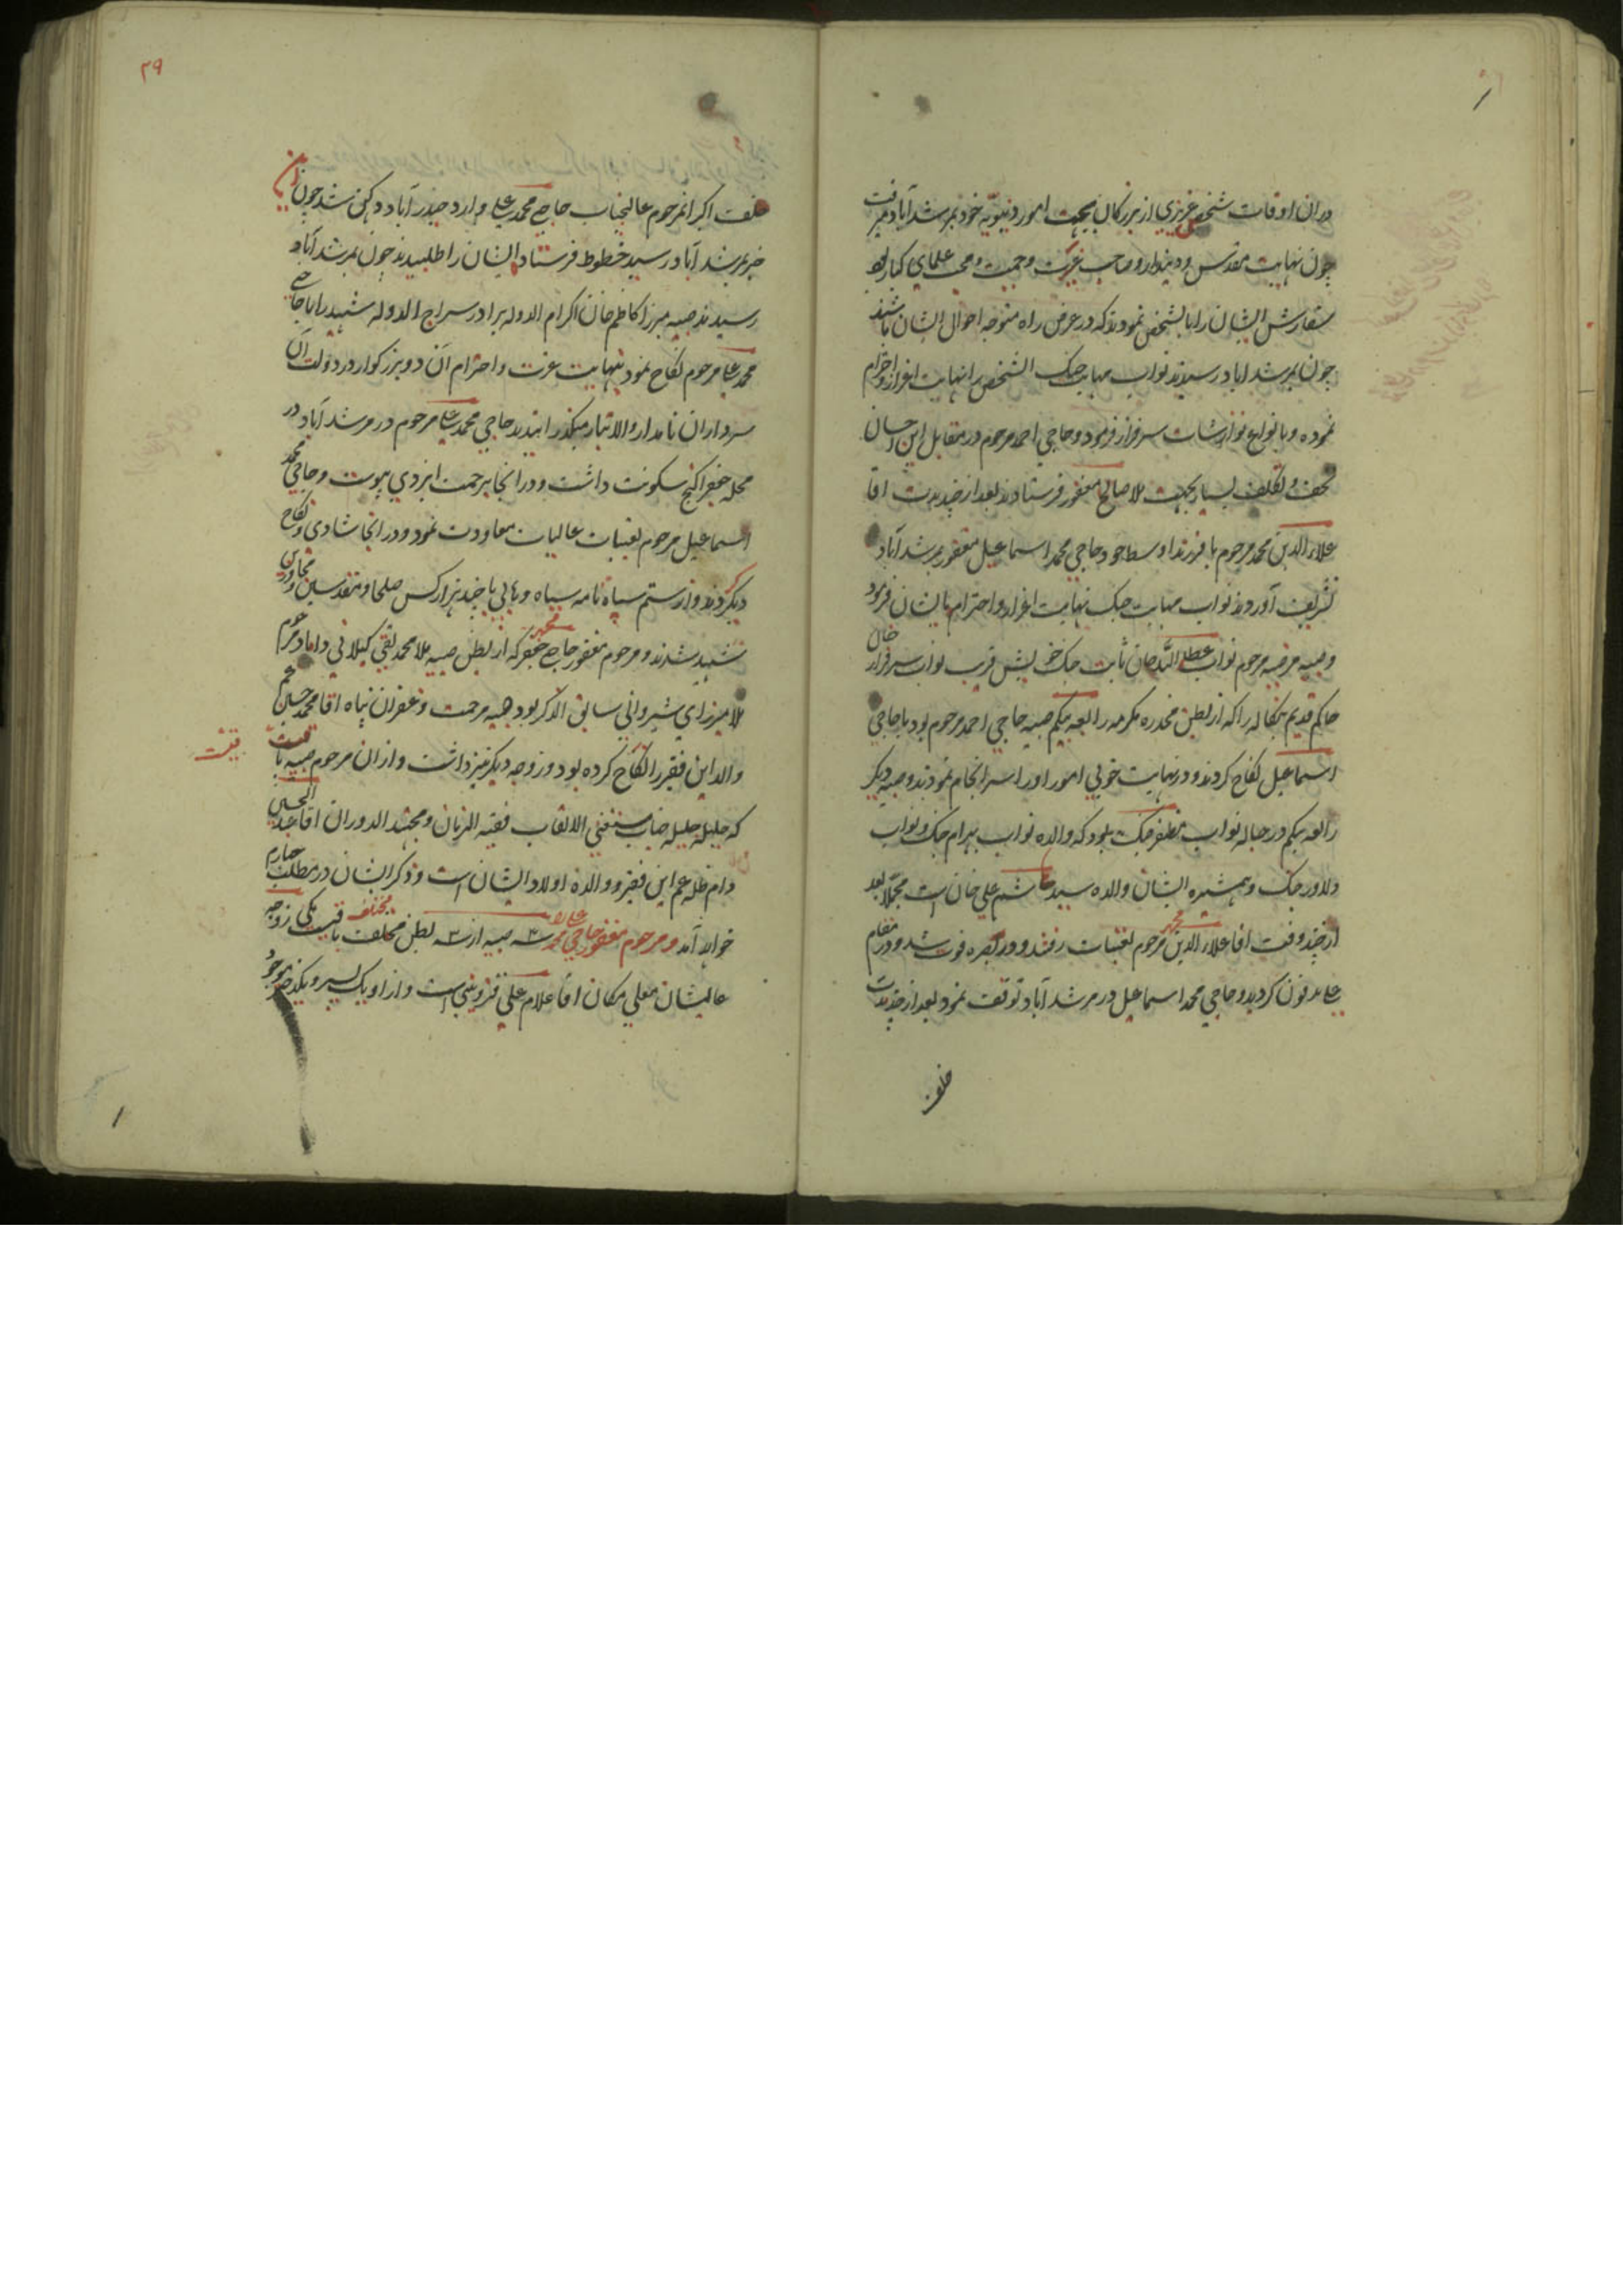 دران اوقات شخص عزیزی از بزرگان بجهت امور دنیویه خود بمرشدآباد میرفت
چون نهایت مقدس و دیندار و صاحب غیرت و حمیت و محب علمای کبار بود
سفارش ایشان را بآنشخص نمودند که در عرض راه متوجه احوال ایشان باشند
چون بمرشداباد رسیدند نواب مهابت جنک آنشخص را نهایت اعزاز و احترام
نموده و بانواع نوازشات سرفراز فرمود و حاجی احمد مرحوم در مقابل این احسان
تحف و تکلف بسیار بجهت ملا صالح مغفور فرستادند بعد از چند مدت اقا
علاء الدین محمد مرحوم با فرزند اوسط خود حاجی محمد اسماعیل مغفور بمرشدآباد
تشریف آوردند نواب مهابت جنک نهایت اعزاز و احترام بایشان فرمود
و صبیه مرضیه مرحوم نواب عطاء الله خان ثابت جنک خویش قریب نواب سرفراز خان
حاکم قدیم بنکاله را که از بطن مخدره مکرمه رابعه بیکم صبیه حاجی احمد مرحوم بود با حاجی
اسماعیل نکاح کردند و در نهایت خوبی امور او را سرانجام نمودند و صبیه دیکر
رابعه بیکم در حباله نواب مظفر جنک بود که والده نواب بهرام جنک و نواب
دلاور جنک و همشیره ایشان والده سید هاشم علی خان است مجملا بعد
از چند وقت اقا علاء الدین محمد مرحوم بعتبات رفتند و در بصره فوت شد و در مقام
علی مدفون کردید و حاجی محمد اسماعیل در مرشد آباد توقف نمود بعد از چند مدت
خلف
۲۹
خلف اکبر آنمرحوم عالیجناب حاجی محمد علی وارد حیدرآباد دکهن شد چون این
خبر بمرشدآباد رسید خطوط فرستاد ایشان را طلبیدند چون بمرشدآباد
رسیدند صبیه میرزا کاظم خان اکرام الدوله برادر سراج الدوله شهید را با حاجی
محمد علی مرحوم نکاح نمود بنهایت عزت و احترام آن دو بزرکوار در دولت آن
سرداران نامدار والاتبار میکذرانیدند حاجی محمد علی مرحوم در مرشدآباد در
محله جعفراکنج سکونت داشت و در انجا برحمت ایزدی پیوست و حاجی محمد
اسماعیل مرحوم بعتبات عالیات معاودت نمود و در انجا شادی و نکاح
دیکر کردند و از ستم سپاه نامه سیاه وهابی با چند هزار کس صلحا و مقدسین و مجاورین
شهید شدند و مرحوم مغفور حاجی محمد جعفر که از بطن صبیه ملا محمد تقی کیلانی داماد مرحوم
ملا میرزای شیروانی سابق الذکر بود صبیه مرحمت و غفران پناه اقا محمد حسین عم
والد این فقیر را نکاح کرده بود و زوجه دیکر نیز داشت و ازان مرحوم صبیه باقیست
که حلیله جلیله جناب مستغنی الالقاب فقیه الزمان و مجتهد الدوران اقا عبد الحسین
دام ظله عم این فقیر و والده اولاد ایشان است و ذکر ایشان در مطلب چهارم
خواهد آمد و مرحوم مغفور حاجی محمد علی را سه صبیه از سه بطن مختلف باقیست یکی زوجه
عالیشان معلی مکان اقا غلام علی قزوینی است و از او یک پسر و یک دختر موجود